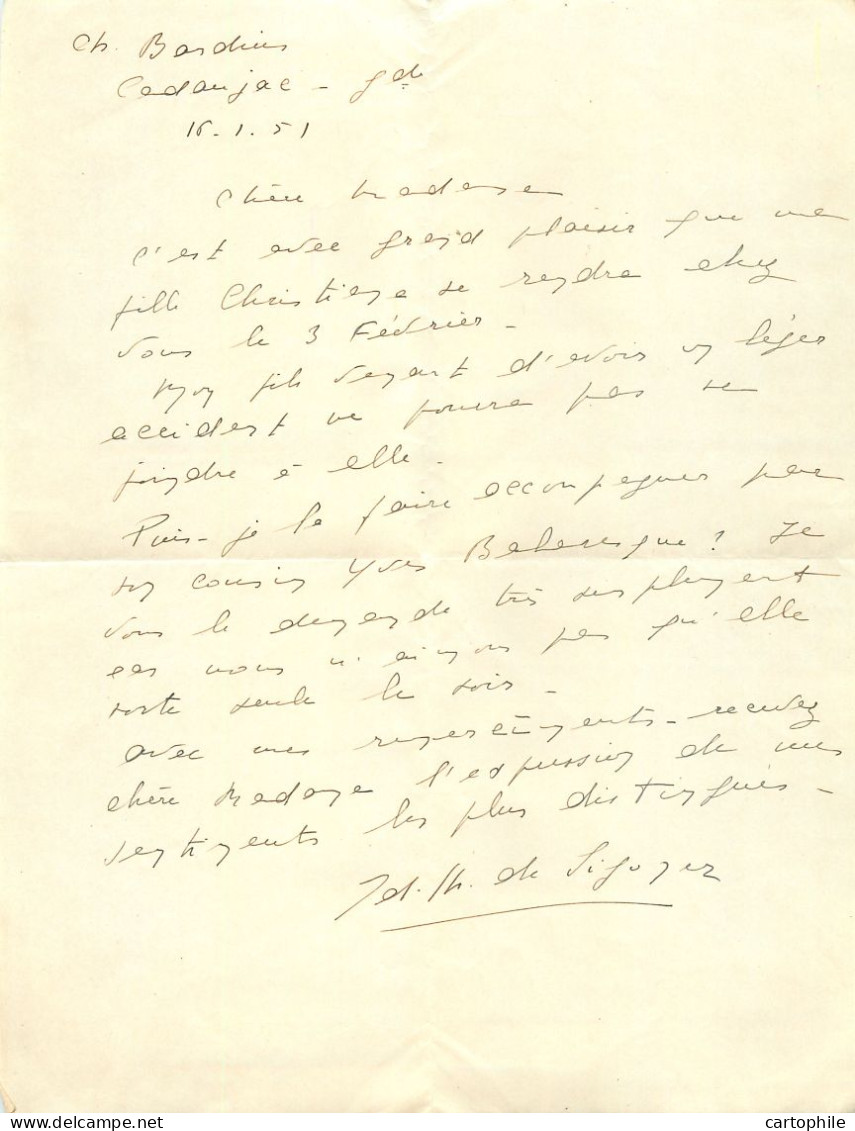 Ch. Bardins
Cadaujac - Gde
16.1.51
Chère Madame
C'est avec grand plaisir que ma
fille Christiane se rendra chez
vous le 3 Février -
Mon fils venant d'avoir un léger
accident ne pourra pas se
joindre à elle -
Puis-je la faire accompagner par
son cousin Yves Balaresque? Je
vous le demande très simplement
car nous n'aimons pas qu'elle
sorte seule le soir -
Avec mes remerciements - recevez
chère Madame l'expression de mes
sentiments les plus distingués -
de Sigoyer
cartophile